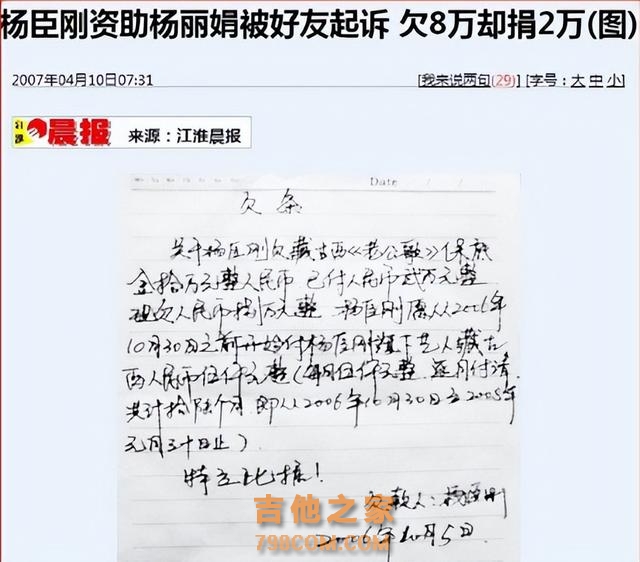 杨臣刚资助杨丽娟被好友起诉 欠8万却捐2万(图)
2007年04月10日07:31 [我来说两句(29)] [字号:大 中 小]
江淮 晨报 来源:江淮晨报
Date / /
欠条
关于杨臣刚欠藏古西《老公歌》保底
金拾万元整人民币 已付人民币贰万元整
现欠人民币捌万元整 杨臣刚愿从2006年
10月30日之前开始付杨臣刚旗下艺人藏古
西人民币伍仟元整(每月伍仟元整 逐月付清
共计拾陆个月 即从2006年10月30日至2008年
元月三十日止)
特立此据!
欠款人:杨臣刚
2006年10月5日
吉他之家
798COM.COM